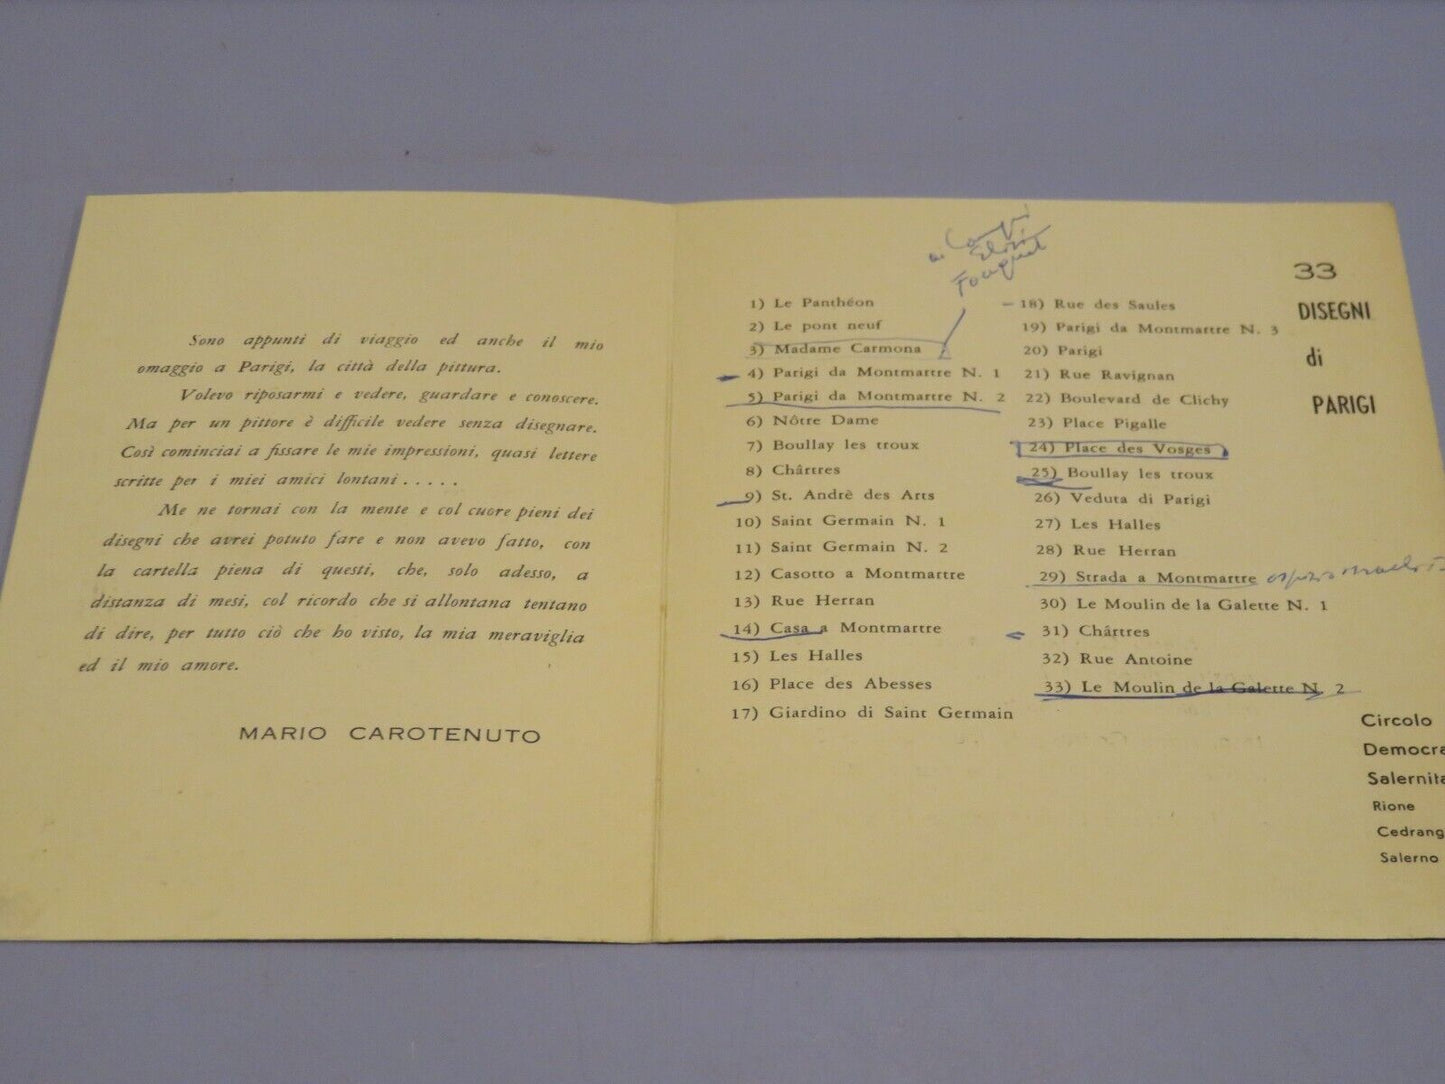 Sono appunti di viaggio ed anche il mio
omaggio a Parigi, la città della pittura.
Volevo riposarmi e vedere, guardare e conoscere.
Ma per un pittore è difficile vedere senza disegnare.
Così cominciai a fissare le mie impressioni, quasi lettere
scritte per i miei amici lontani . . . . .
Me ne tornai con la mente e col cuore pieni dei
disegni che avrei potuto fare e non avevo fatto, con
la cartella piena di questi, che, solo adesso, a
distanza di mesi, col ricordo che si allontana tentano
di dire, per tutto ciò che ho visto, la mia meraviglia
ed il mio amore.
MARIO CAROTENUTO
1) Le Panthéon
2) Le pont neuf
3) Madame Carmona
4) Parigi da Montmartre N. 1
5) Parigi da Montmartre N. 2
6) Nôtre Dame
7) Boullay les troux
8) Chârtres
9) St. Andrè des Arts
10) Saint Germain N. 1
11) Saint Germain N. 2
12) Casotto a Montmartre
13) Rue Herran
14) Casa a Montmartre
15) Les Halles
16) Place des Abesses
17) Giardino di Saint Germain
18) Rue des Saules
19) Parigi da Montmartre N. 3
20) Parigi
21) Rue Ravignan
22) Boulevard de Clichy
23) Place Pigalle
24) Place des Vosges
25) Boullay les troux
26) Veduta di Parigi
27) Les Halles
28) Rue Herran
29) Strada a Montmartre
30) Le Moulin de la Galette N. 1
31) Chârtres
32) Rue Antoine
33) Le Moulin de la Galette N. 2
33
DISEGNI
di
PARIGI
Circolo
Democra
Salernita
Rione
Cedrang
Salerno